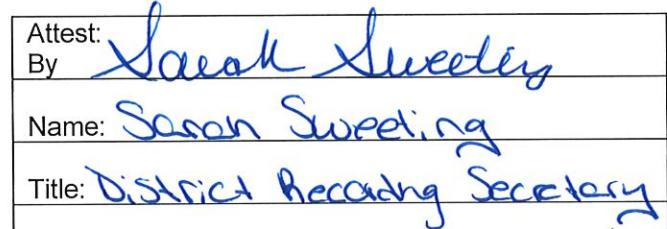 Attest:
By Sarah Sweeting
Name: Sarah Sweeting
Title: District Recording Secretary